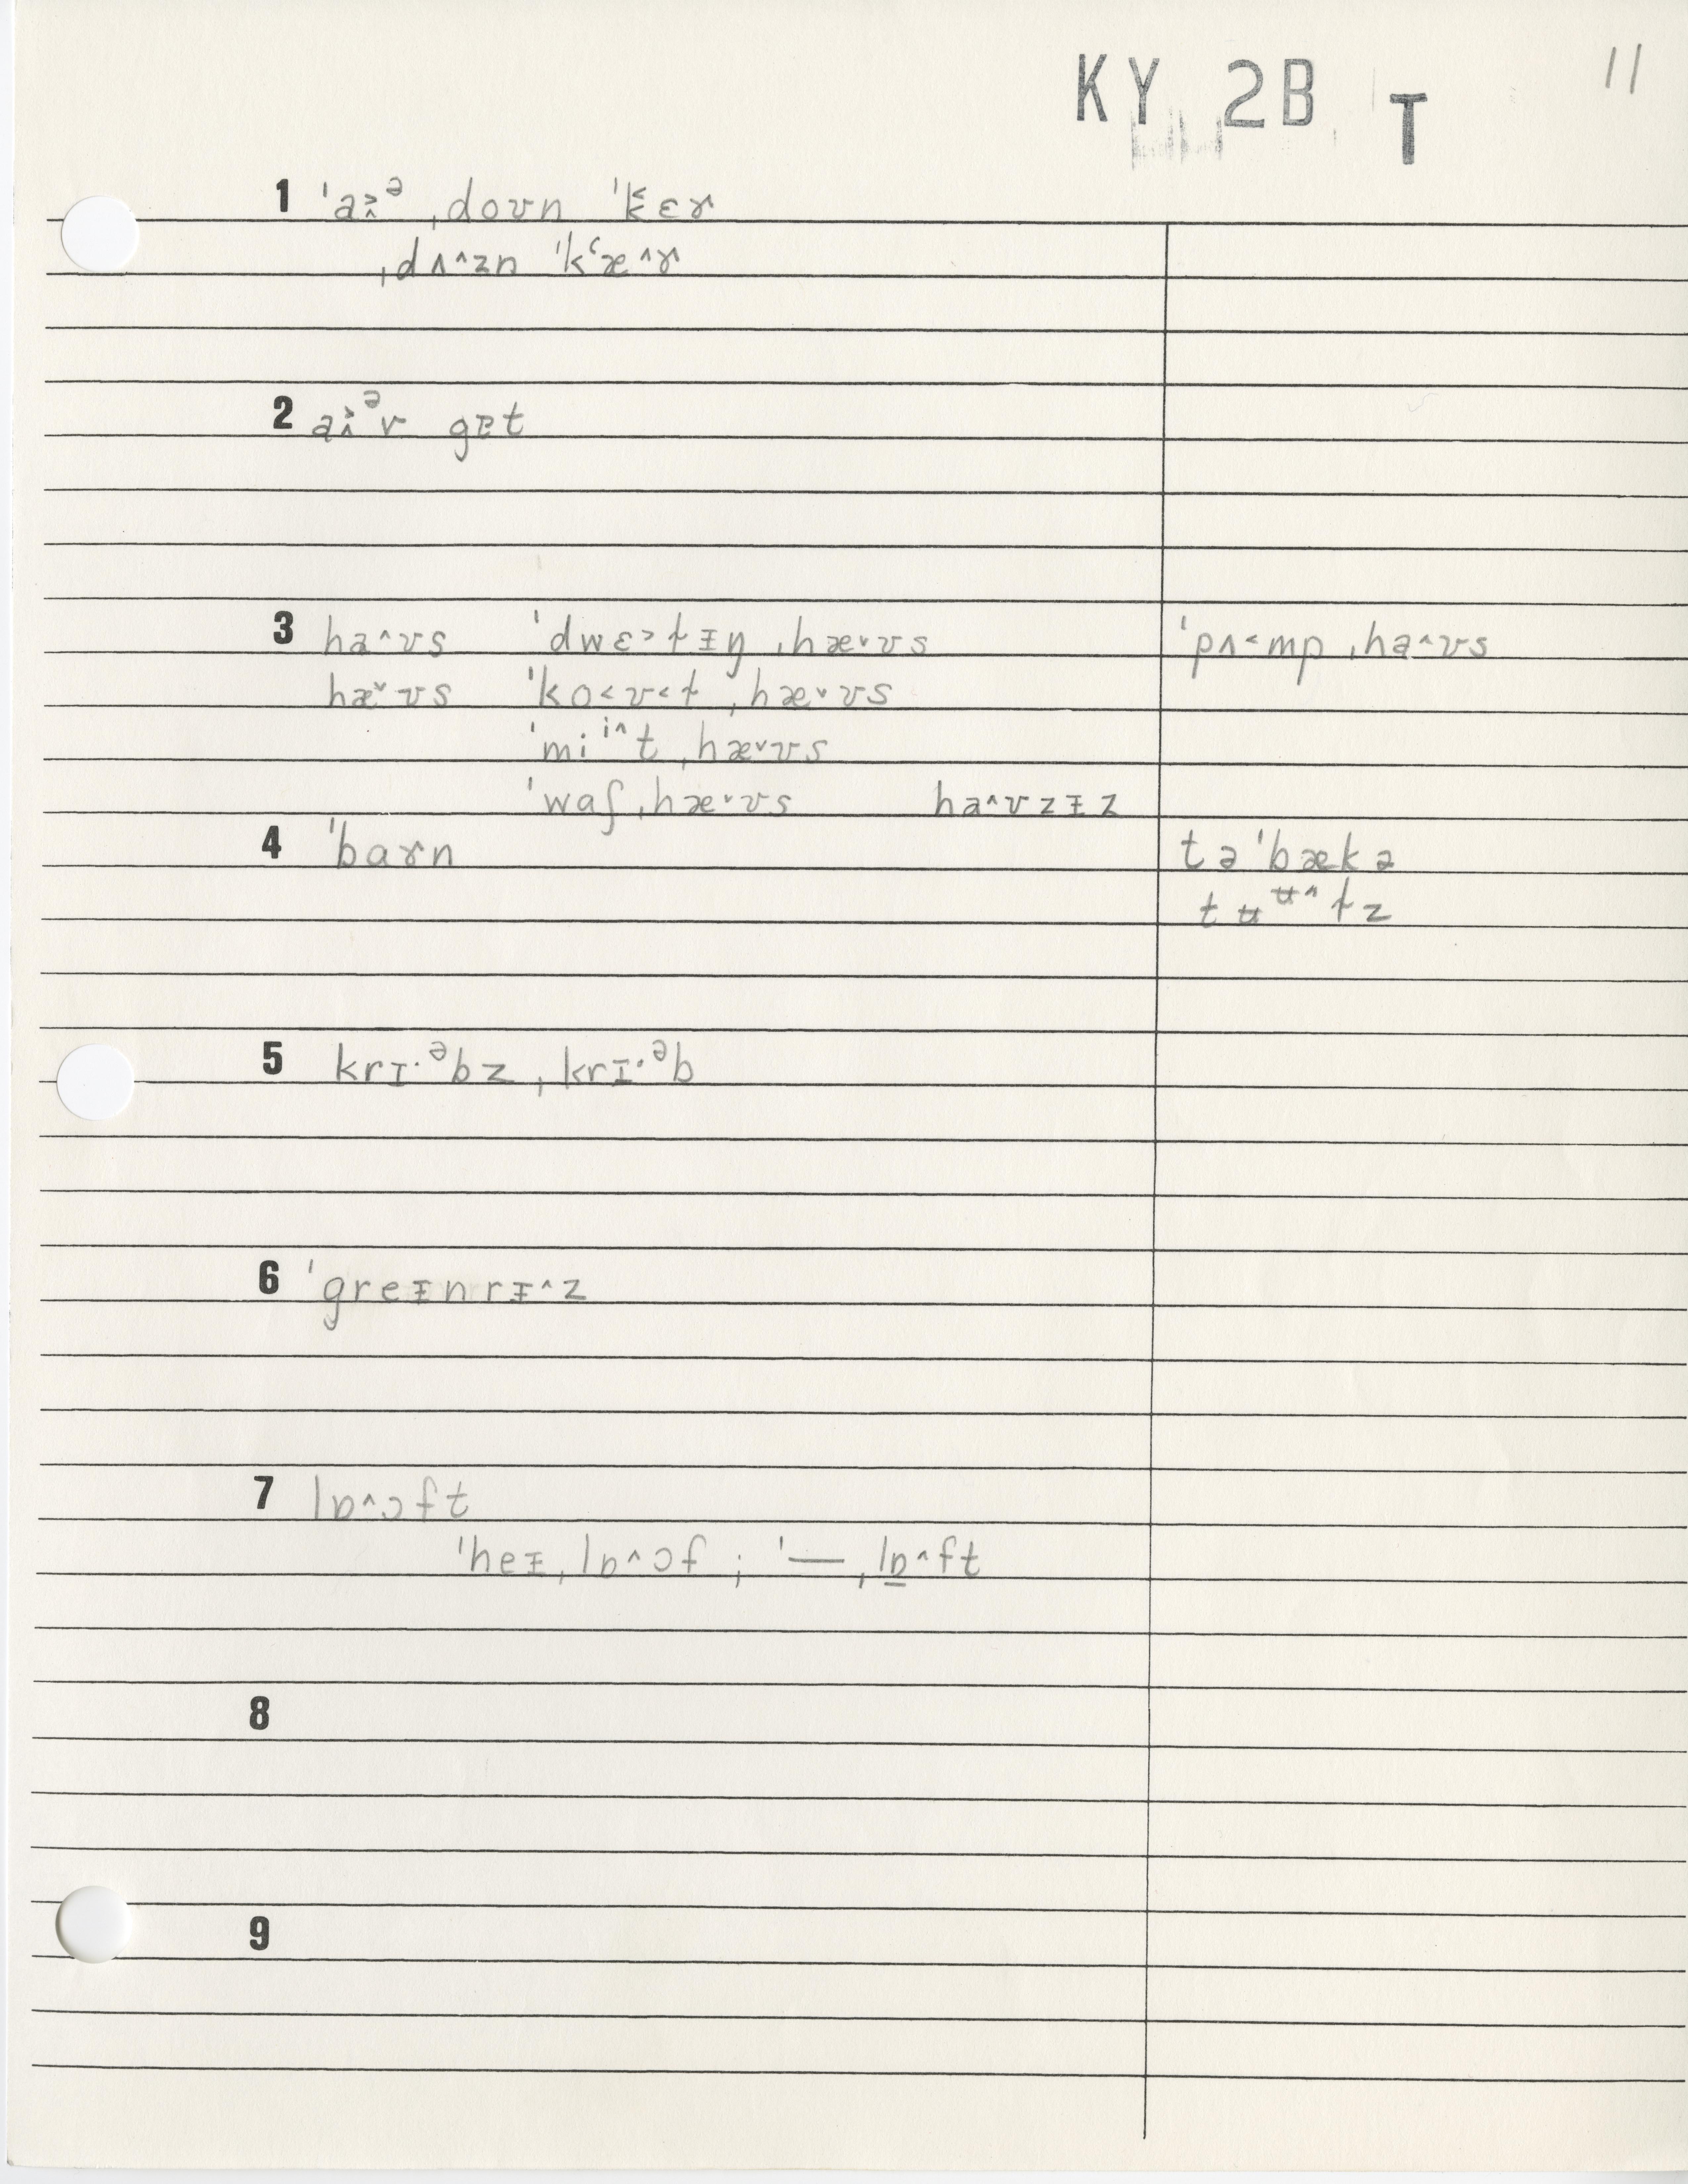 KY 2B T 11
1 ˈa˃˄ᵊ ˌdoʊn ˈk˂ɛɚ
ˌdʌ^zn ˈkʻæ^ɚ
2 a˃˄ᵊv gɪt
3 ha^ʊs ˈdwɛ˃ɫɪŋ ˌhæ˅ʊs ˈpʌ˂mp ˌha^ʊs
hæ˅ʊs ˈko˂ʊ˂ɫ ˌhæ˅ʊs
ˈmiⁱ^t ˌhæ˅ʊs
ˈwaʃ ˌhæ˅ʊs ha^ʊzɪz
4 ˈbaɚn təˈbækə
tʉᶶ^ɫz
5 krɪ·ᵊbz, krɪ·ᵊb
6 ˈgreɪnrɪ^z
7 lɒ^ɔft
ˈheɪˌlɒ^ɔf ; ˈ— ˌlɒ̲^ft
8
9